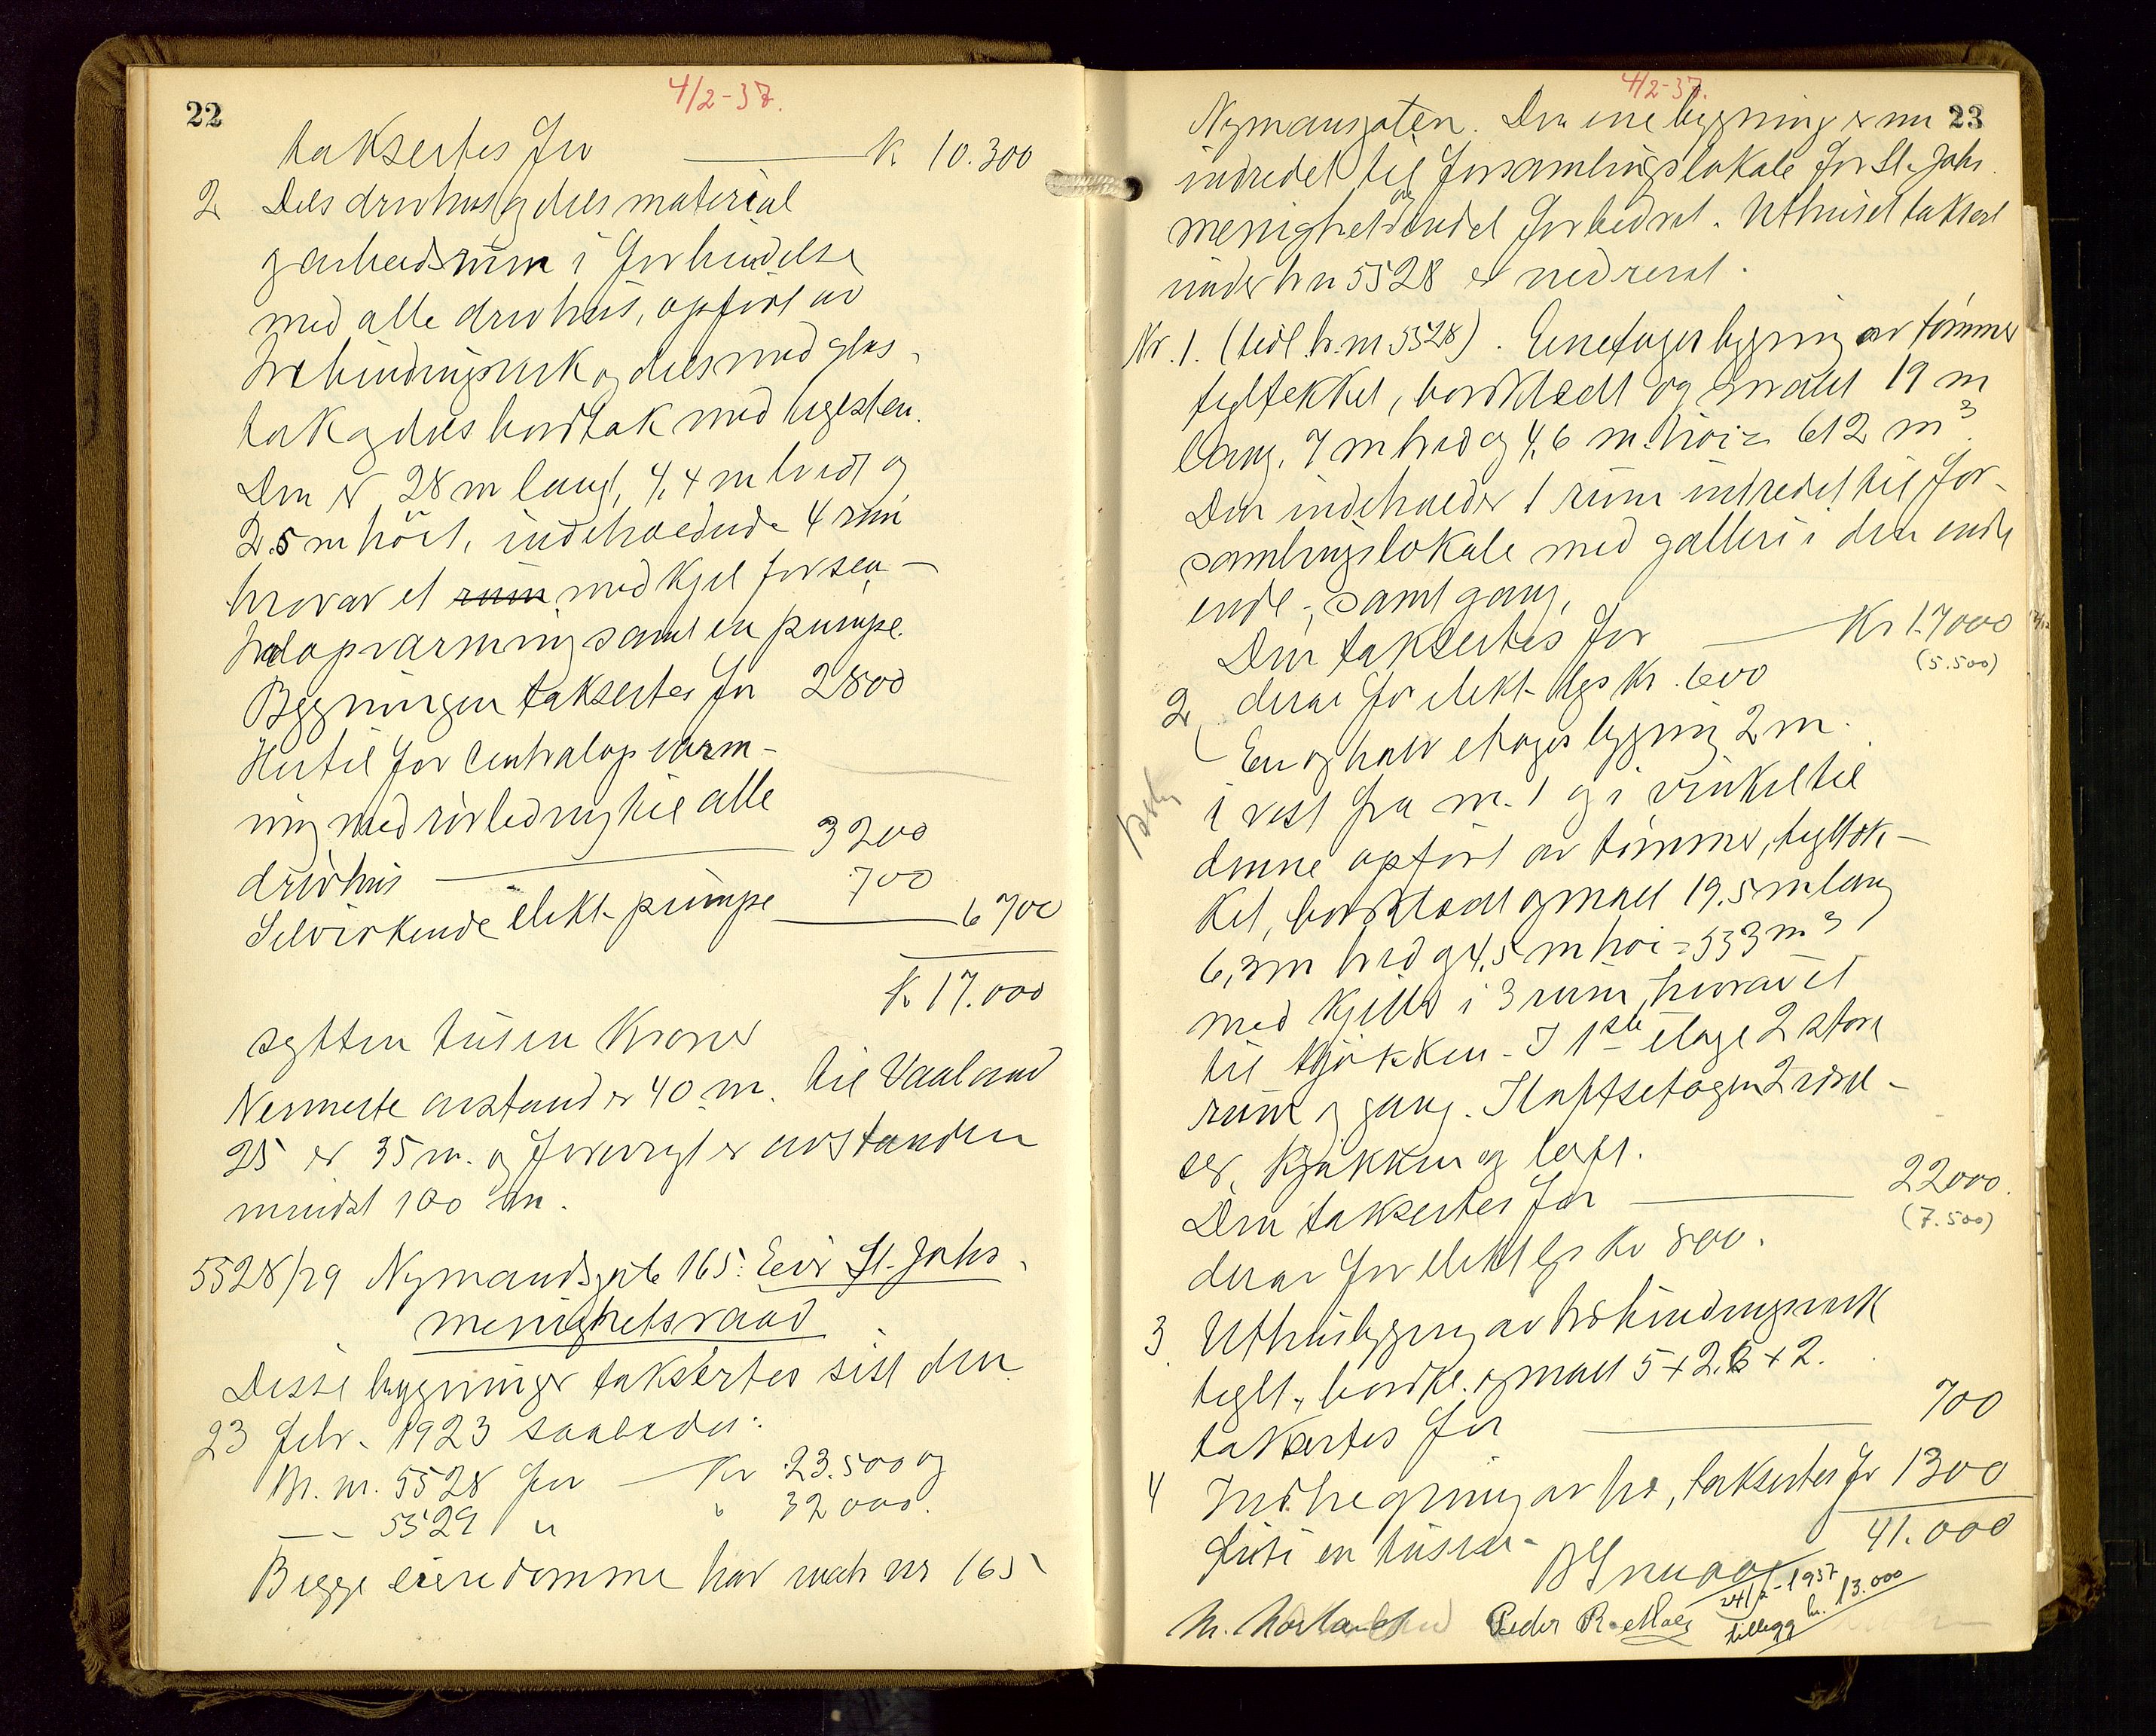 22
4/2-37.
taksertes for K 10.300
2 Dels drivhus og dels material
og arbeidsrum i forbindelse
med alle drivhus, opført av
trebindingsverk og dels med glas-
tak og dels bordtak med teglsten.
Den er 28 m langt, 4,4 m bredt og
2.5 m høit, indeholdende 4 rum
hvorav et rum med kjel for sen-
tralopvarming samt en pumpe.
Bygningen taksertes for 2800
Hertil for centralopvarm-
ning med rørledning til alle
drivhus 3200
Selvirkende elekt. pumpe 700
6700
K 17.000
sytten tusen Kroner
Nermeste avstand er 40 m. til Vaaland
25 er 35 m. og forøvrigt er avstanden
mindst 100 m.
5528/29 Nymandsgate 165: Eier St. Johs.
menighetsraad
Disse bygninger taksertes sist den
23 febr. 1923 saaledes:
Br. nr. 5528 for Kr 23.500 og
— 5529 " " 32000.
Begge eiendomme har match nr 165
4/2-37.
23
Nymansgaten. Den ene bygning er nu
indredet til forsamlingslokale for St. Johs.
menighet og endel forbedret. Uthuset taksert
under br nr 5528 er nedrevet.
Nr. 1. (tidl. br. nr 5528). Enetages bygning av tømmer
tegltekket, bordklædt og malt 19 m
lang, 7 m bred og 4,6 m høi = 612 m³.
Den indeholder 1 rum indredet til for-
samlingslokale med galleri i den ende
ende, samt gang.
Den taksertes for Kr 17000
(5.500)
derav for elekt. lys kr. 600
2 En og halv etages bygning 2 m.
i vest fra nr. 1 og i vinkel til
denne opført av tømmer, tegltæk-
ket, bordklædt og malt 19.5 m lang
6,3 m bred og 4,5 m høi = 553 m³
med kjeller i 3 rum, hvorav et
til kjøkken. I 1ste etage 2 store
rum og gang. I loftsetagen 2 værel-
ser, kjøkken og loft.
Den taksertes for 22000.
(7.500)
derav for elekt lys kr 800.
3. Uthusbygning av trebindingsverk
teglt., bordkl. og malt 5 x 2.6 x 2.
taksertes for 700
4 Indhegning av tre, taksertes for 1300
41.000
Førti en tusen
24/2-1937
tillegg kr. 13.000